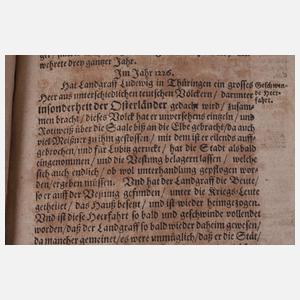 wehrete drey gantzer Jahr.
Im Jahr 1226.
Hat Landgraff Ludwig in Thüringen ein grosses
Heer aus unterschiedlichen teutschen Völckern / darunter
insonderheit der Osterländer gedacht wird / zusam-
men bracht / dieses Volck hat er unversehens eintzeln / und
Rottweiß über die Saale biß an die Elbe gebracht / da auch
viel Meißner zu ihn gestossen / mit dem ist er eilends auff-
gebrochen / und für Lubin geruckt / hat die Stadt alsbald
eingenommen / und die Vestung belägern lassen / welche
sich auch endlich / ob wol unterhandlung gepflogen wor-
den / ergeben müssen. Und hat der Landgraff die Beute /
so er auff der Vestung gefunden / unter die Kriegs-Leute
getheilet / das Hauß besetzt / und ist wieder heimgezogen.
Und ist diese Heerfahrt so bald und geschwinde vollendet
worden / daß der Landgraff so bald wieder daheim gewesen /
da mancher gemeinet / es were unmüglich / daß er die Stät-
Geschwin-
de Heer-
fahrt.